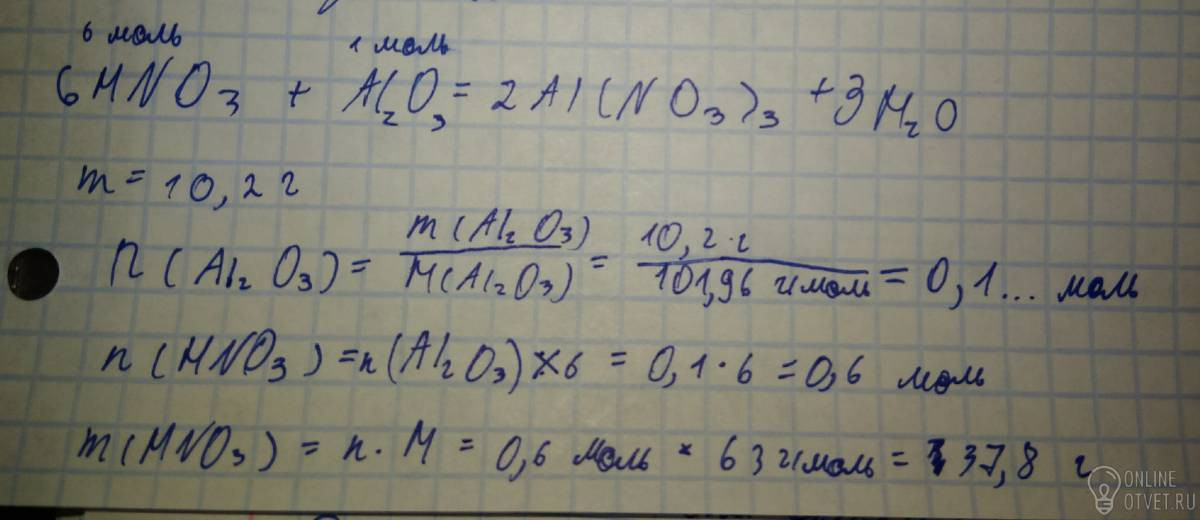 6 моль 1 моль
6HNO₃ + Al₂O₃ = 2Al(NO₃)₃ + 3H₂O
m = 10,2 г
n(Al₂O₃) = m(Al₂O₃) / M(Al₂O₃) = 10,2 г / 101,96 г/моль = 0,1... моль
n(HNO₃) = n(Al₂O₃) × 6 = 0,1 · 6 = 0,6 моль
m(HNO₃) = n · M = 0,6 моль × 63 г/моль = 37,8 г
ONLINE
OTVET.RU